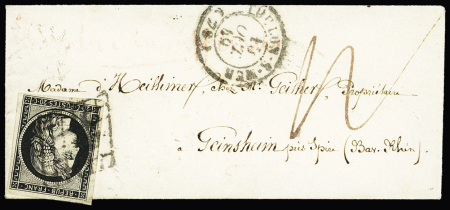 TOULON-S-MER
Madame d'Heillimer, chez Mr. Geither, Propriétaire
à Geinsheim près Spire (Bav. Rhin)
REPUB. FRANC.